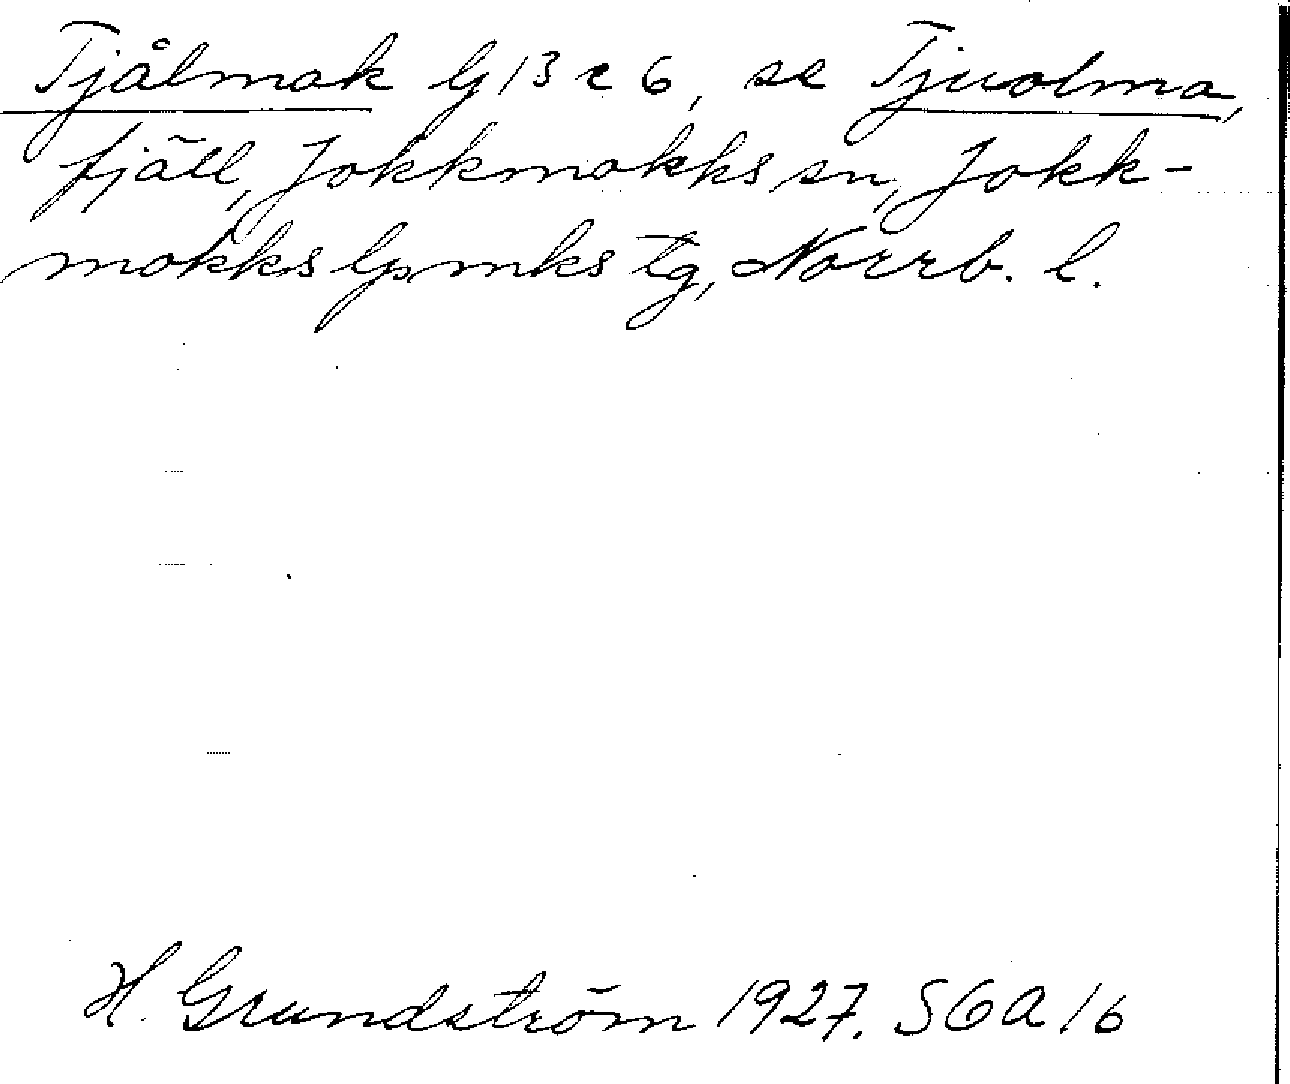 Tjålmak G 13 c 6, se Tjuolma,
fjäll, Jokkmokks sn, Jokk-
mokks lpmks tg, Norrb. l.
H. Grundström 1927. SGA 16